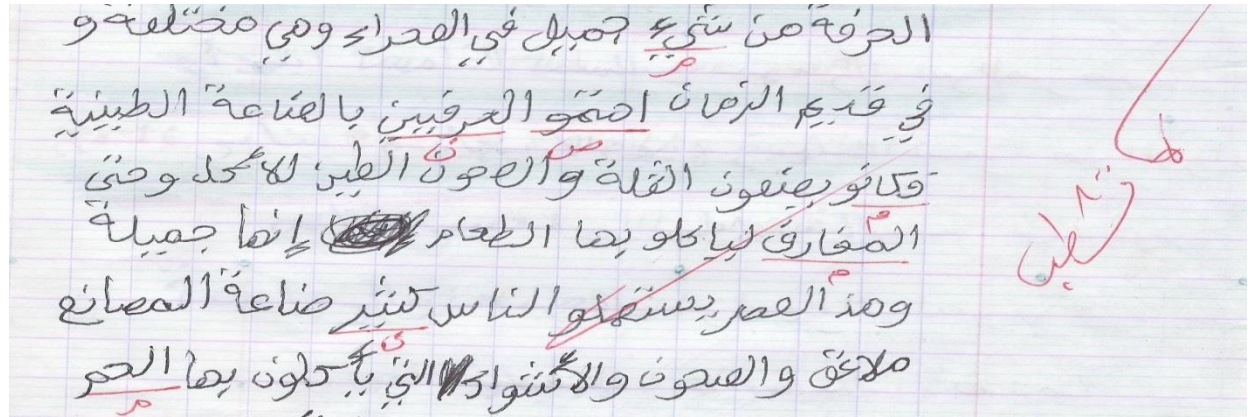 الحرفة من شيء جميل في الصحراء وهي مختلفة و
في قديم الزمان اهتمو الحرفيين بالصناعة الطينية
فكانو يصنعون القلة والصحون الطين للأكل وحتى
المغارف لياكلو بها الطعام إنها جميلة
وهذ العصر يستعملو الناس كثير صناعة المصانع
ملاعق والصحون والأكشواك التي يأكلون بها الحم